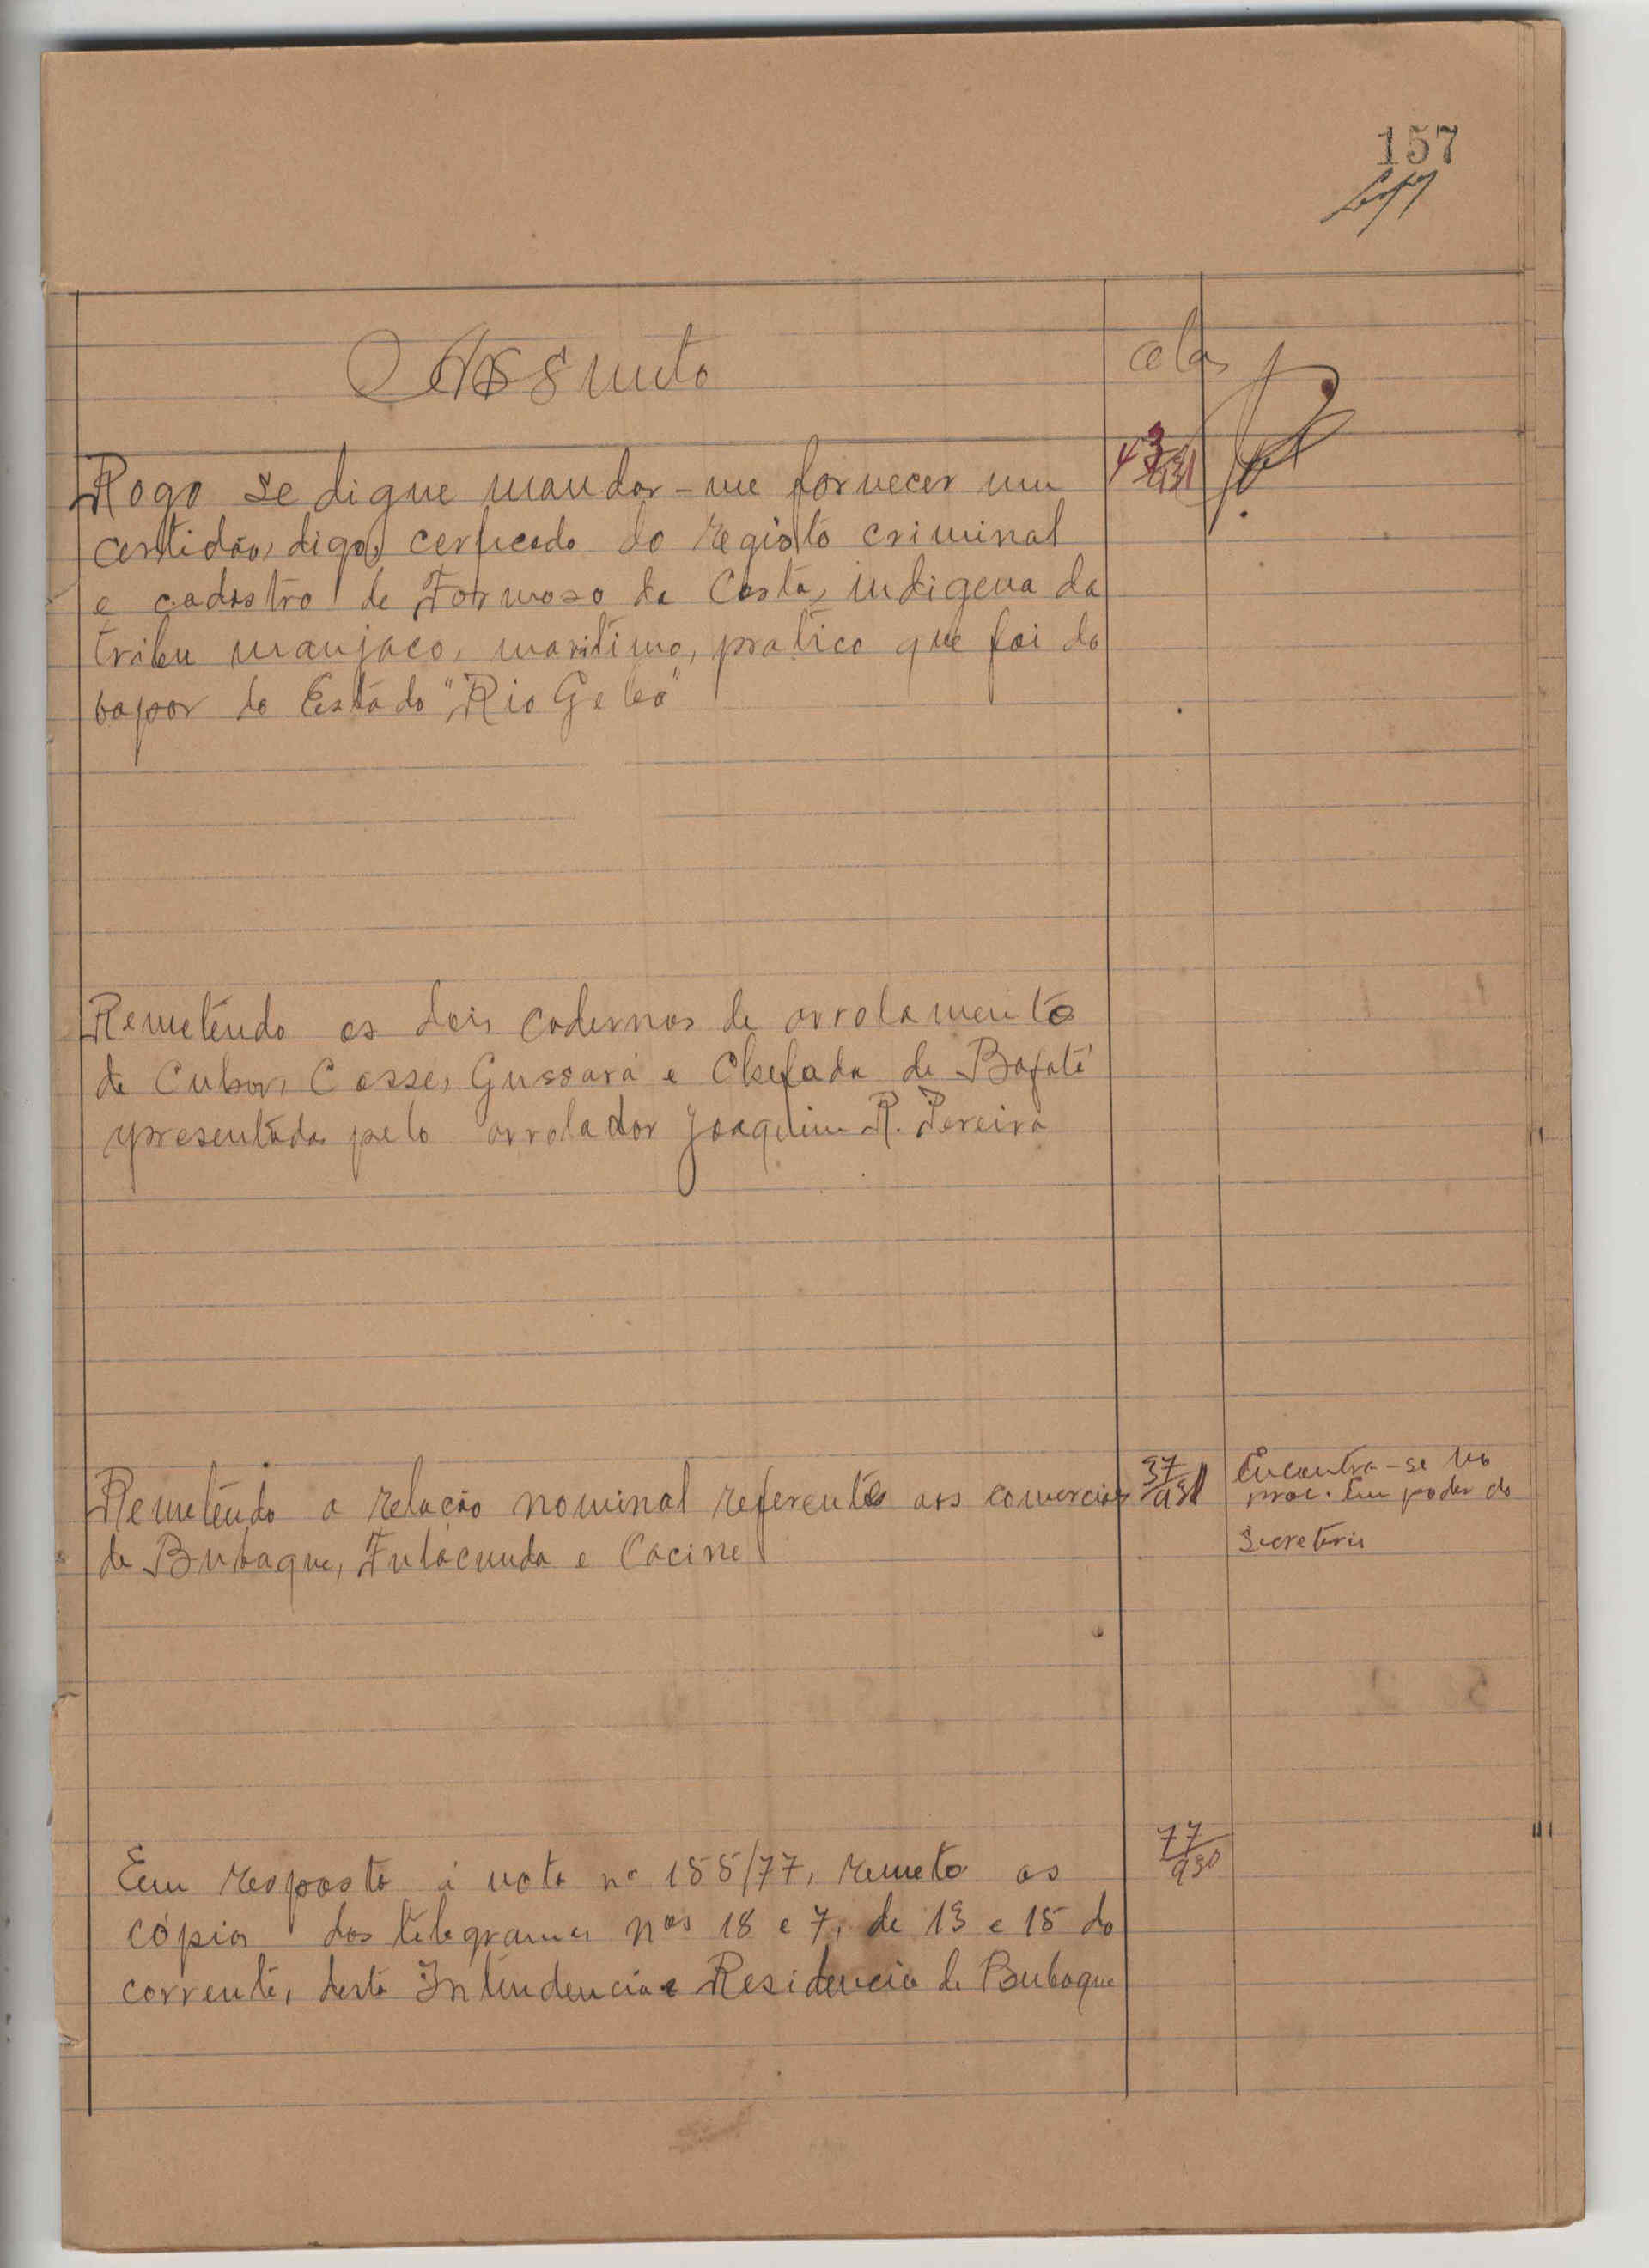 157
Assunto
Rogo se digne mandar-me fornecer um
43/931
certidão, digo, cerficado do registo criminal
e cadastro de Formoso da Costa, indigena da
tribu manjaco, maritimo, pratico que foi do
vapor do Estado "Rio Geba"
Remetendo os dois cadernos de arrolamento
de Cubor, Cosse, Gussará e Chefada de Bafatá
apresentados pelo arrolador Joaquim R. Pereira
Remetendo a relação nominal referente aos comercios
37/931
Encontra-se no
proc. Em poder do
Secretário
de Bubaque, Fulacunda e Cacine
77/930
Em resposta á nota nº 155/77, remeto as
cópias dos telegramas nos 18 e 7, de 13 e 15 do
corrente, desta Intendencia e Residencia de Bubaque